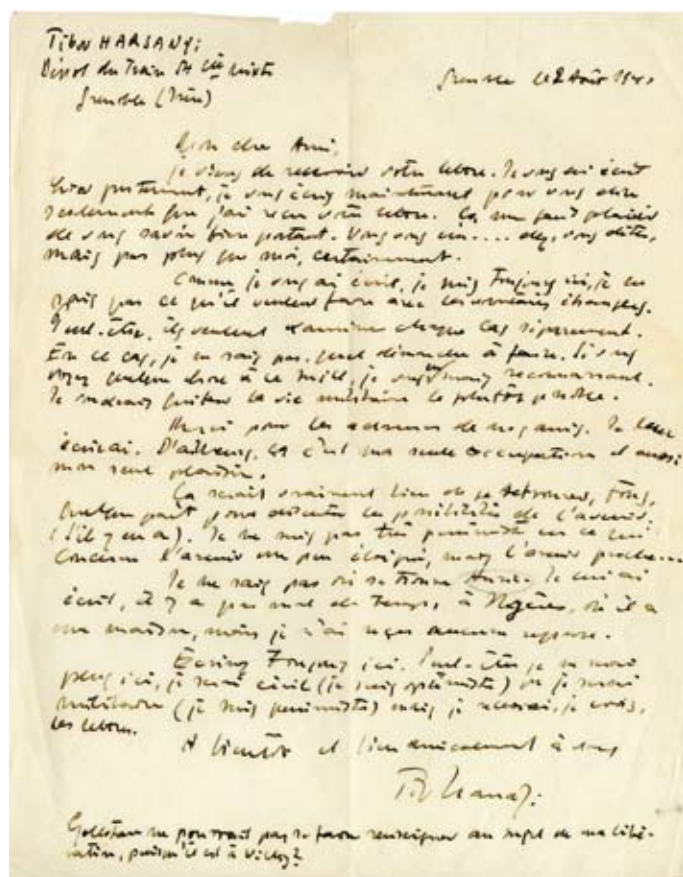 Tibor HARSANYI
Dépot du Train St
Grenoble (Isère)
Grenoble le 2 Août 1940
Mon cher Ami,
je viens de recevoir votre lettre. Je vous ai écrit
hier justement, je vous écris maintenant pour vous dire
seulement que j'ai reçu votre lettre. Ça me fait plaisir
de vous savoir bien portant. Vous vous em.... dez, vous dites,
mais pas plus que moi, certainement.
Comme je vous ai écrit, je suis toujours ici, je ne
sais pas ce qu'il veulent faire avec les étrangers.
Peut-être, ils veulent examiner chaque cas séparément.
En ce cas, je ne sais pas quel démarche à faire. Si vous
voyez quelque chose à ce sujet, je vous serais reconnaissant.
Je voudrais quitter la vie militaire le plutôt possible.
Merci pour les adresses de nos amis. Je leur
écrirai. D'ailleurs, ça c'est ma seule occupation et aussi
mon seul plaisir.
Ça serait vraiment bien de se retrouver, tous,
quelque part pour discuter la possibilité de l'avenir,
(s'il y en a). Je ne suis pas très pessimiste en ce qui
concerne l'avenir un peu éloigné, mais l'avenir proche...
Je ne sais pas où se trouve. Je lui ai
écrit, il y a pas mal de temps, à Nogères, où il a
une maison, mais je n'ai reçu aucune réponse.
Écrivez toujours ici. Peut-être je ne serai
plus ici, je serai civil (je suis optimiste) ou je serai
militaire (je suis pessimiste) mais je recevrai, je crois,
les lettres.
A bientôt et bien amicalement à vous
Tib Harsanyi
Golestan ne pourrait pas se faire renseigner au sujet de ma libé-
ration, puisqu'il est à Vichy?